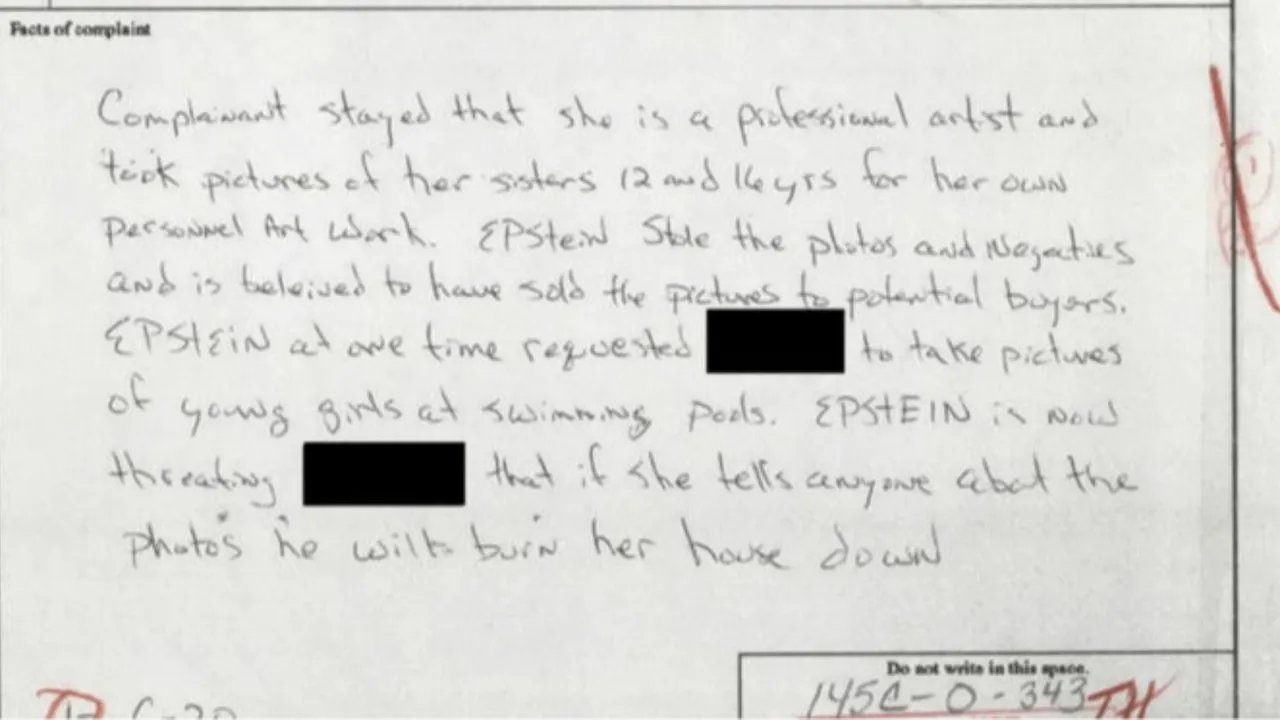 Facts of complaint
Complainant stayed that she is a professional artist and
took pictures of her sisters 12 and 16 yrs for her own
personnel Art Work. EPStein Stole the photos and Negatives
and is beleived to have sold the pictures to potential buyers.
EPStEiN at one time requested to take pictures
of young girls at swimming pools. EPStEIN is now
threating that if she tells anyone abot the
photos he will burn her house down
Do not write in this space.
145C-0-343